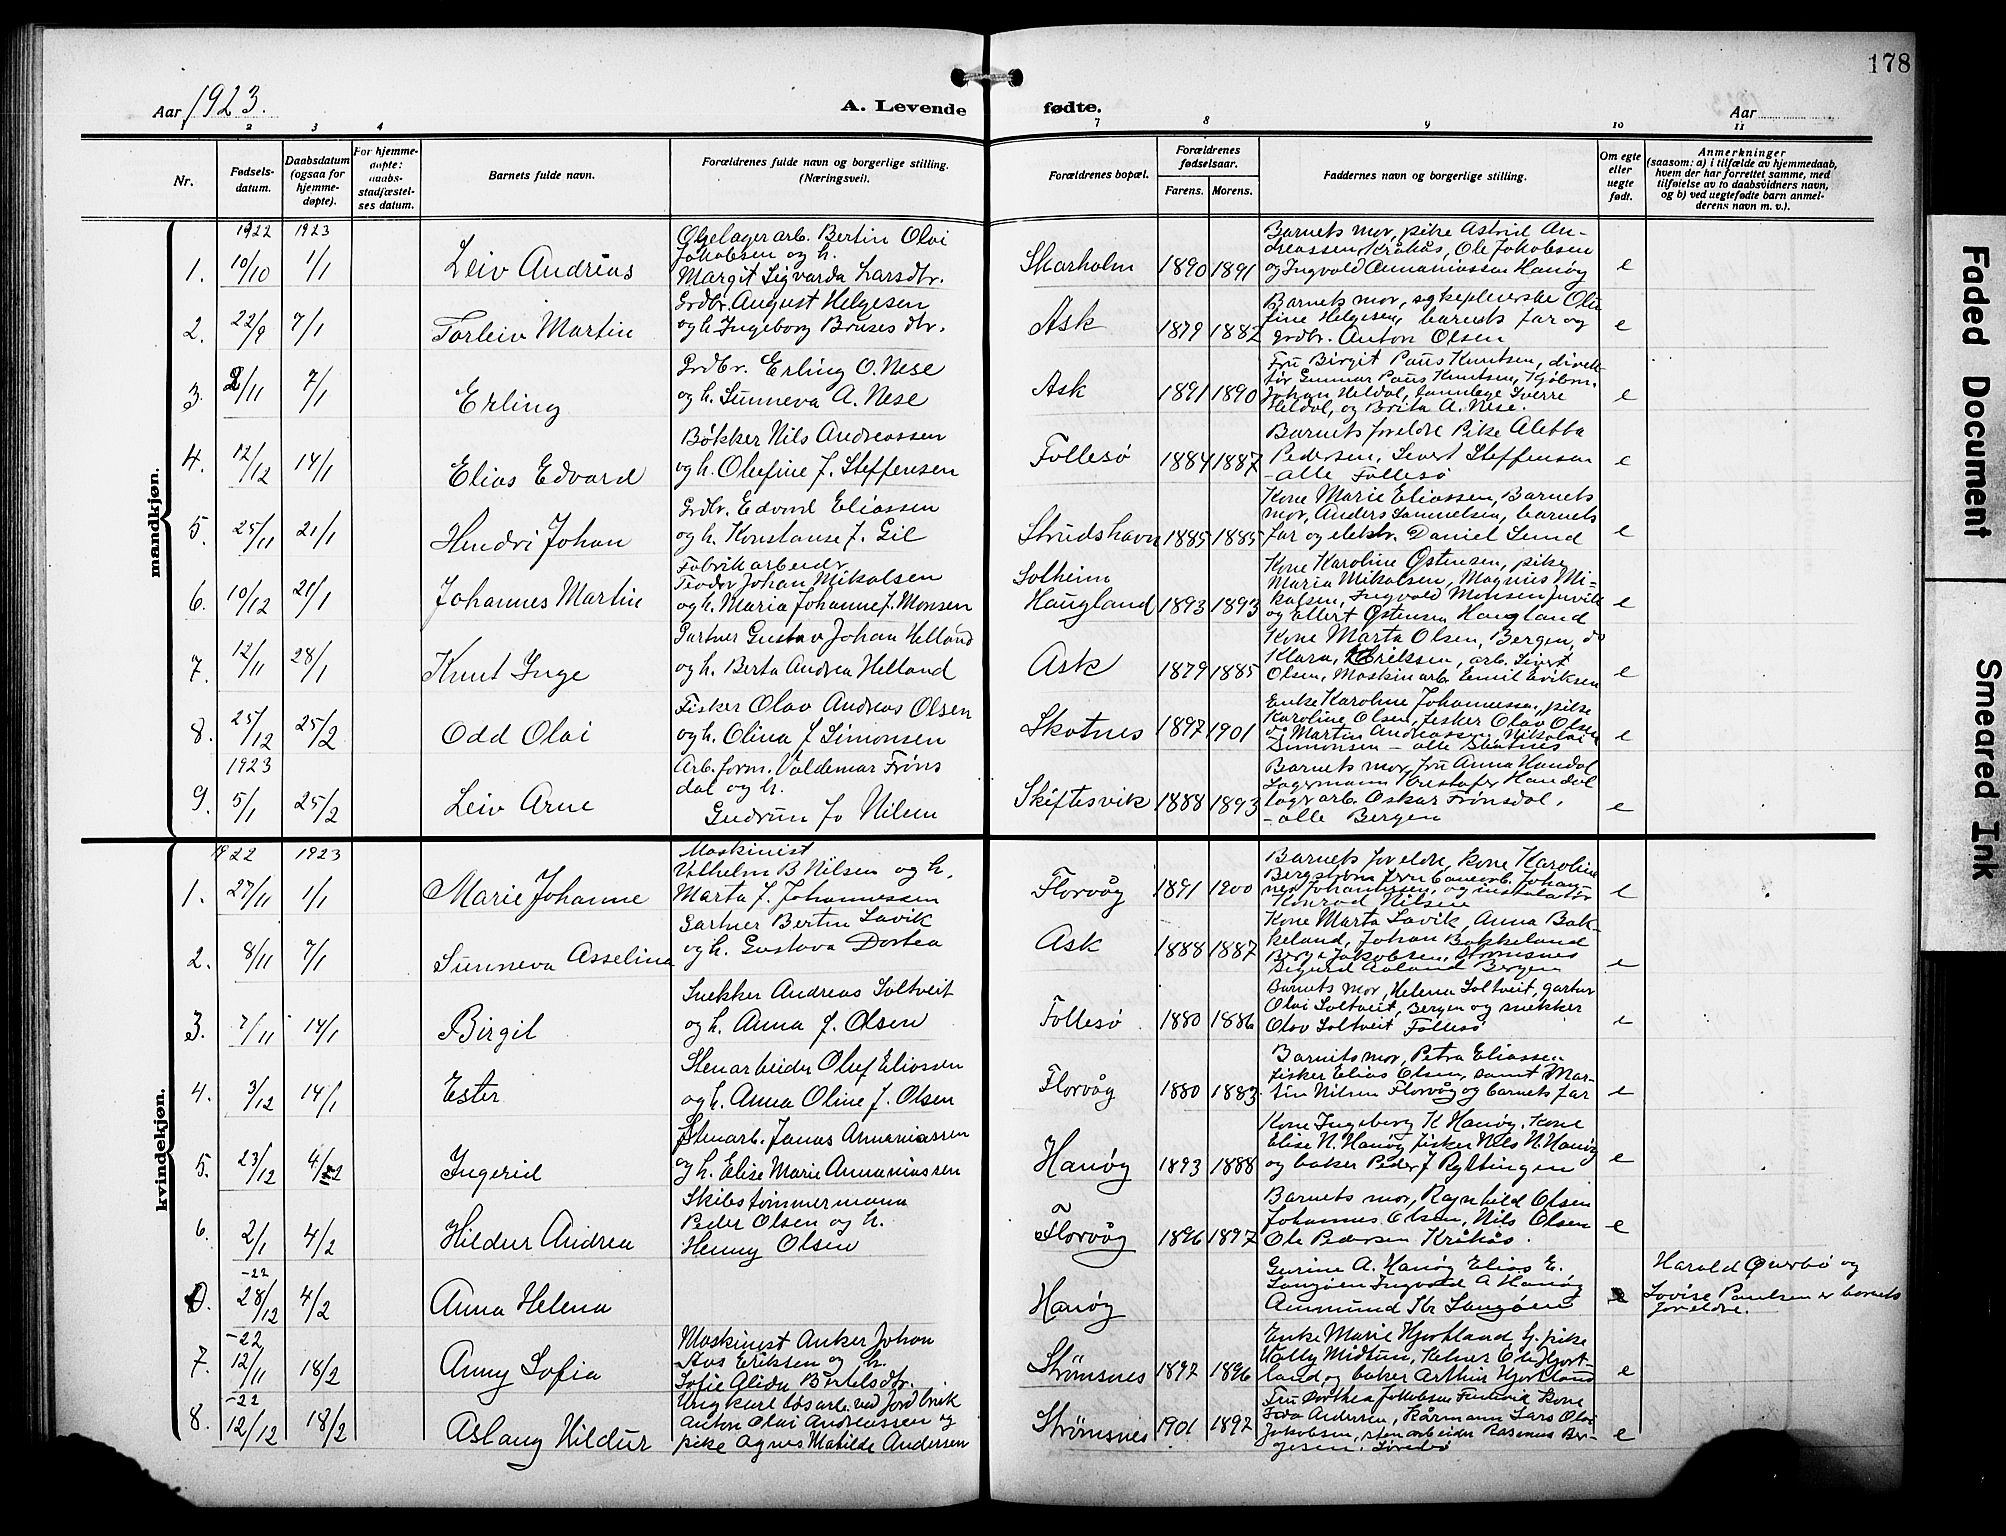 178
Aar 1923.
A. Levende fødte.
Aar
1 2 3 4 7 8 9 10 11
Nr.
Fødsels-
datum.
Daabsdatum
(ogsaa for
hjemme-
døpte).
For hjemme-
døpte:
daabs-
stadfæstel-
ses datum.
Barnets fulde navn.
Forældrenes fulde navn og borgerlige stilling.
(Næringsvei).
Forældrenes bopæl.
Forældrenes
fødselsaar.
Farens. Morens.
Faddernes navn og borgerlige stilling.
Om egte
eller
uegte
født.
Anmerkninger
(saasom: a) i tilfælde av hjemmedaab,
hvem der har forrettet samme, med
tilføielse av to daabsvidners navn,
og b) ved uegtefødte barn anmel-
derens navn m. v.).
mandkjøn.
1922 1923
1. 10/10 1/1 Leiv Andreas
Bertin Olai
Jakobsen og h.
Margit Sigvarda Larsdtr.
Skarholm 1890 1891
Barnets mor, pike Astrid An-
dreassen Kråkås, Ole Jakobsen
og Ingvald Annaniassen Hanøy
e
2. 22/9 7/1 Torleiv Martin
Grdbr. August Helgesen
og h. Ingeborg Brusesdtr.
Ask 1879 1882
Barnets mor, sykepleierske Oli-
fine Helgesen, barnets far og
grdbr. Anton Olsen
e
3. 2/11 7/1 Erling
Grdbr. Erling O. Nese
og h. Sunneva A. Nese
Ask 1891 1890
Fru Birgit Paus Knutsen, direk-
tør Gunnar Paus Knutsen, Kjøbm.
Johan Heldal, tannlege Sverre
Heldal, og Brita A. Nese.
e
4. 12/12 14/1 Elias Edvard
Bøkker Nils Andreassen
og h. Olefine J. Steffensen
Follesø 1884 1887
Barnets foreldre Pike Aletta
Pedersen, Sivert Steffensen
- alle Follesø
e
5. 25/11 21/1 Hendri Johan
Grdbr. Edvard Eliassen
og h. Konstanse J. Gil
Strudshavn 1885 1885
Kone Marie Eliassen, Barnets
mor, Anders Samuelsen, barnets
far og elektr. Daniel Lund
e
6. 10/12 21/1 Johannes Martin
Fabrikarbeidr
Teodor Johan Mikalsen
og h. Maria Johanne J. Monsen
Solheim
Haugland 1893 1893
Kone Karoline Østensen, pike
Maria Mikalsen, Magnus Mi-
kalsen, Ingvald Monsen Juvik
og Ellert Østensen Haugland
e
7. 12/11 28/1 Knut Inge
Gartner Gustav Johan Helland
og h. Berta Andrea Helland
Ask 1879 1885
Kone Marta Olsen, Bergen, do
Klara Eriksen, arb. Sivert
Olsen, Maskinarb. Emil Eriksen
e
8. 25/12 25/2 Odd Olai
Fisker Olav Andreas Olsen
og h. Olina J. Simonsen
Skotnes 1897 1901
Enke Karoline Johannessen, pike
Karoline Olsen, fisker Olav Olsen
do Martin Andreassen, Nikolai
Simonsen - alle Skotnes
e
1923
9. 5/1 25/2 Leiv Arne
Arb. form. Valdemar Frøns
dal og h.
Gudrun Jo Nilsen
Skiftesvik 1888 1893
Barnets mor, fru Anna Handal
Lagermann Kristofer Handal
lagrarb. Oskar Frønsdal,
- alle Bergen
e
kvindekjøn.
1922 1923
1. 27/11 1/1 Marie Johanne
Maskinist
Vilhelm B Nilsen og h.
Marta J. Johannessen
Florvåg 1891 1900
Barnets foreldre, kone Karoline
Bergstrøm Johan-
nes Johannesen, og instalatør
Konrad Nilsen
e
2. 8/11 7/1 Sunneva Asselina
Gartner Bertin Lavik
og h. Gustava Dortea
Ask 1888 1887
Kone Marta Lavik, Anna Bak-
keland, Johan Bakkeland
Berge Jakobsen, Strømsnes
Sigurd Aaland Bergen
e
3. 7/11 14/1 Birgit
Snekker Andreas Soltveit
og h. Anna J. Olsen
Follesø 1880 1886
Barnets mor, Helena Soltveit, gartnr
Olai Soltveit, Bergen og snekker
Olav Soltveit Follesø
e
4. 3/12 14/1 Ester
Stenarbeider Oluf Eliassen
og h. Anna Oline J. Olsen
Florvåg 1880 1883
Barnets mor, Petra Eliassen
fisker Elias Olsen, samt Mar-
tin Nilsen Florvåg og barnets far
e
5. 23/12 4/2 Ingerid
Stenarb. Jonas Annaniassen
og h. Elise Marie Annaniassen
Hanøy 1893 1888
Kone Ingeborg K Hanøy. Kone
Elise N. Hanøy fisker Nils N. Hanøy
og baker Peder J Ryttingen
e
6. 2/1 4/2 Hildur Andrea
Skibstømmermann
Peder Olsen og h.
Henny Olsen
Florvåg 1896 1897
Barnets mor, Ragnhild Olsen
Johannes Olsen, Nils Olsen
Ole Pedersen Kråkås.
e
-22
0. 28/12 4/2 Anna Helena
Hanøy
Gurine A. Hanøy Elias E.
Langøen Ingvald A Hanøy
Ammund Kr Langøen
Harald Øverbø og
Lovise Paulsen er barnets
foreldre.
-22
7. 12/11 18/2 Anny Sofia
Maskinist Anker Johan
Aas Eriksen og h.
Sofie Alida Bertelsdtr.
Strømsnes 1897 1896
Enke Marie Hjortland G. pike
Vally Midtun, Kelner Ole Hjort-
land og baker Arthur Hjortland
e
-22
8. 12/12 18/2 Aslaug Hildur
Ungkarl løsarb. ved Jordbruk
Anton Olai Andreassen og
pike Agnes Matilde Andersen
Strømsnes 1901 1897
Fru Dorthea Jakobsen Kone
Fida Andersen, Kårmann Lars Olai
Jakobsen, stenarbeider Rasmus Ber-
gesen,
e
Faded Document
Smeared Ink